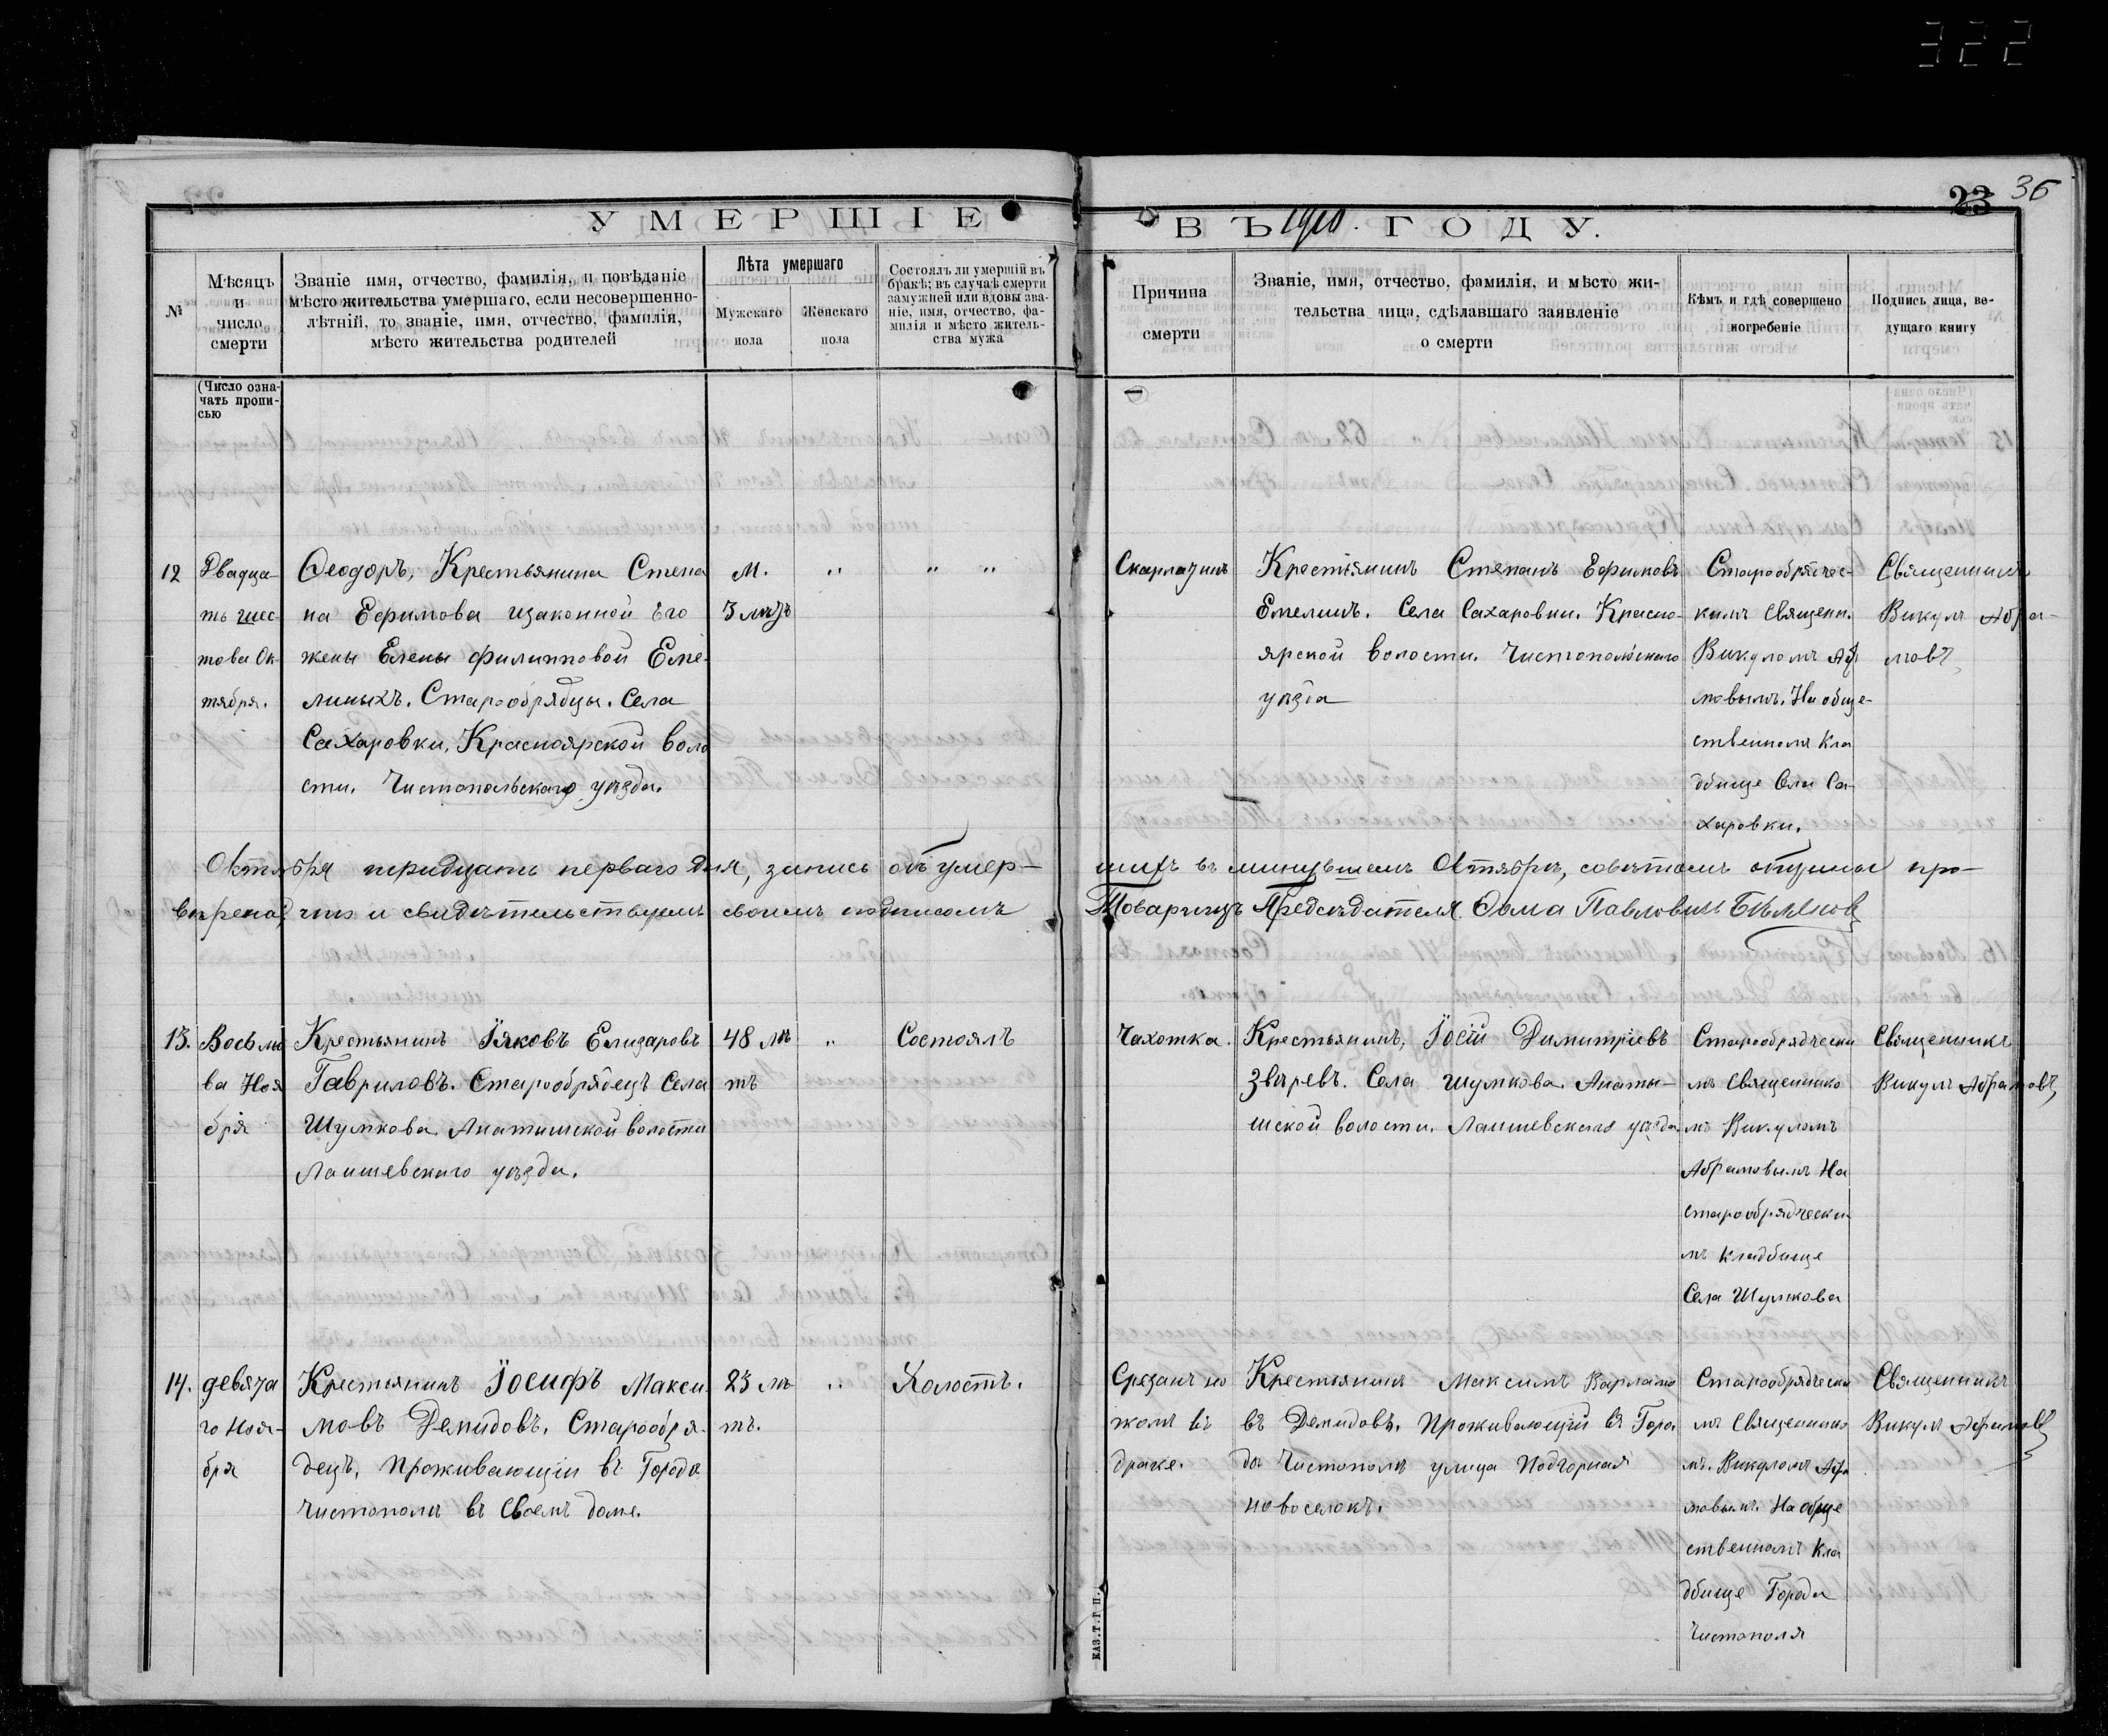 322
23 36
УМЕРШІЕ
ВЪ 1910. ГОДУ.
№
Мѣсяцъ
и
число
смерти
Званіе имя, отчество, фамилія, и повѣданіе
мѣсто жительства умершаго, если несовершенно-
лѣтній, то званіе, имя, отчество, фамилія,
мѣсто жительства родителей
Лѣта умершаго
Мужскаго
пола
Женскаго
пола
Состоялъ ли умершій въ
бракѣ; въ случаѣ смерти
замужней или вдовы зва-
ніе, имя, отчество, фа-
милія и мѣсто житель-
ства мужа
Причина
смерти
Званіе, имя, отчество, фамилія, и мѣсто жи-
тельства лица, сдѣлавшаго заявленіе
о смерти
Кѣмъ и гдѣ совершено
погребеніе
Подпись лица, ве-
дущаго книгу
(Число озна-
чать пропи-
сью
12
Двадца-
ть шес-
това Ок-
тября.
Ѳеодоръ, Крестьянина Степа
на Ефимова изаконной Его
жены Елены Филипповой Еме-
линыхъ. Старообрядцы. Села
Сахаровки, Красноярской воло
сти. Чистопольскаго уѣзда.
м. „ „ „
3 мѣ
Скарлатинъ
Крестьянинъ Степанъ Ефимовъ
Емелинъ. Села Сахаровки. Красно-
ярской волости. Чистопольскаго
уѣзда
Старообрядчес-
кимъ Священн.
Викуломъ Аб
мовымъ. На обще-
ственномъ Кла
дбище Села Са-
харовки.
Священникъ
Викулъ Абра-
мовъ
Октября тридцать перваго дня, запись объ умер-
шихъ въ минувшемъ Октябрѣ, совѣтомъ общины про-
вѣрена, что и свидѣтельствуемъ своимъ подписомъ
Товарищъ Предсѣдателя Ѳома Павловичъ Бѣляковъ
13.
Восьмо
ва Ноя
бря
Крестьянинъ Іяковъ Елизаровъ
Гавриловъ. Старообрядецъ Села
Шумкова Анатышской волости
Лаишевскаго уѣзда.
48 лѣ „
тъ
Состоялъ
Чахотка.
Крестьянинъ, Іосій Димитріевъ
Звѣревъ. Села Шумкова. Анаты-
шской волости. Лаишевскаго уѣзда.
Старообрядчески
мъ Священнико
мъ Викуломъ
Абрамовымъ На
старообрядчески
мъ кладбище
Села Шумкова
Священникъ
Викулъ Абрамовъ
14.
девята
го Ноя-
бря
Крестьянинъ Іосифъ Макси
мовъ Демидовъ. Старообря-
децъ, Проживающіи въ Городѣ
Чистополѣ въ Своемъ доме.
23 лѣ „
тъ.
Холостъ.
Срезанъ но
жомъ въ
драке.
Крестьянинъ Максимъ Варламо
въ Демидовъ. Проживающій въ Горо
дѣ Чистополѣ улица Подгорная
новоселокъ.
Старообрядчески
мъ Священнико
мъ. Викуломъ Абра
мовымъ. На обще
ственномъ Кла
дбище Города
Чистополя
Священникъ
Викулъ Абрамовъ
КАЗ.Т.Г.П.